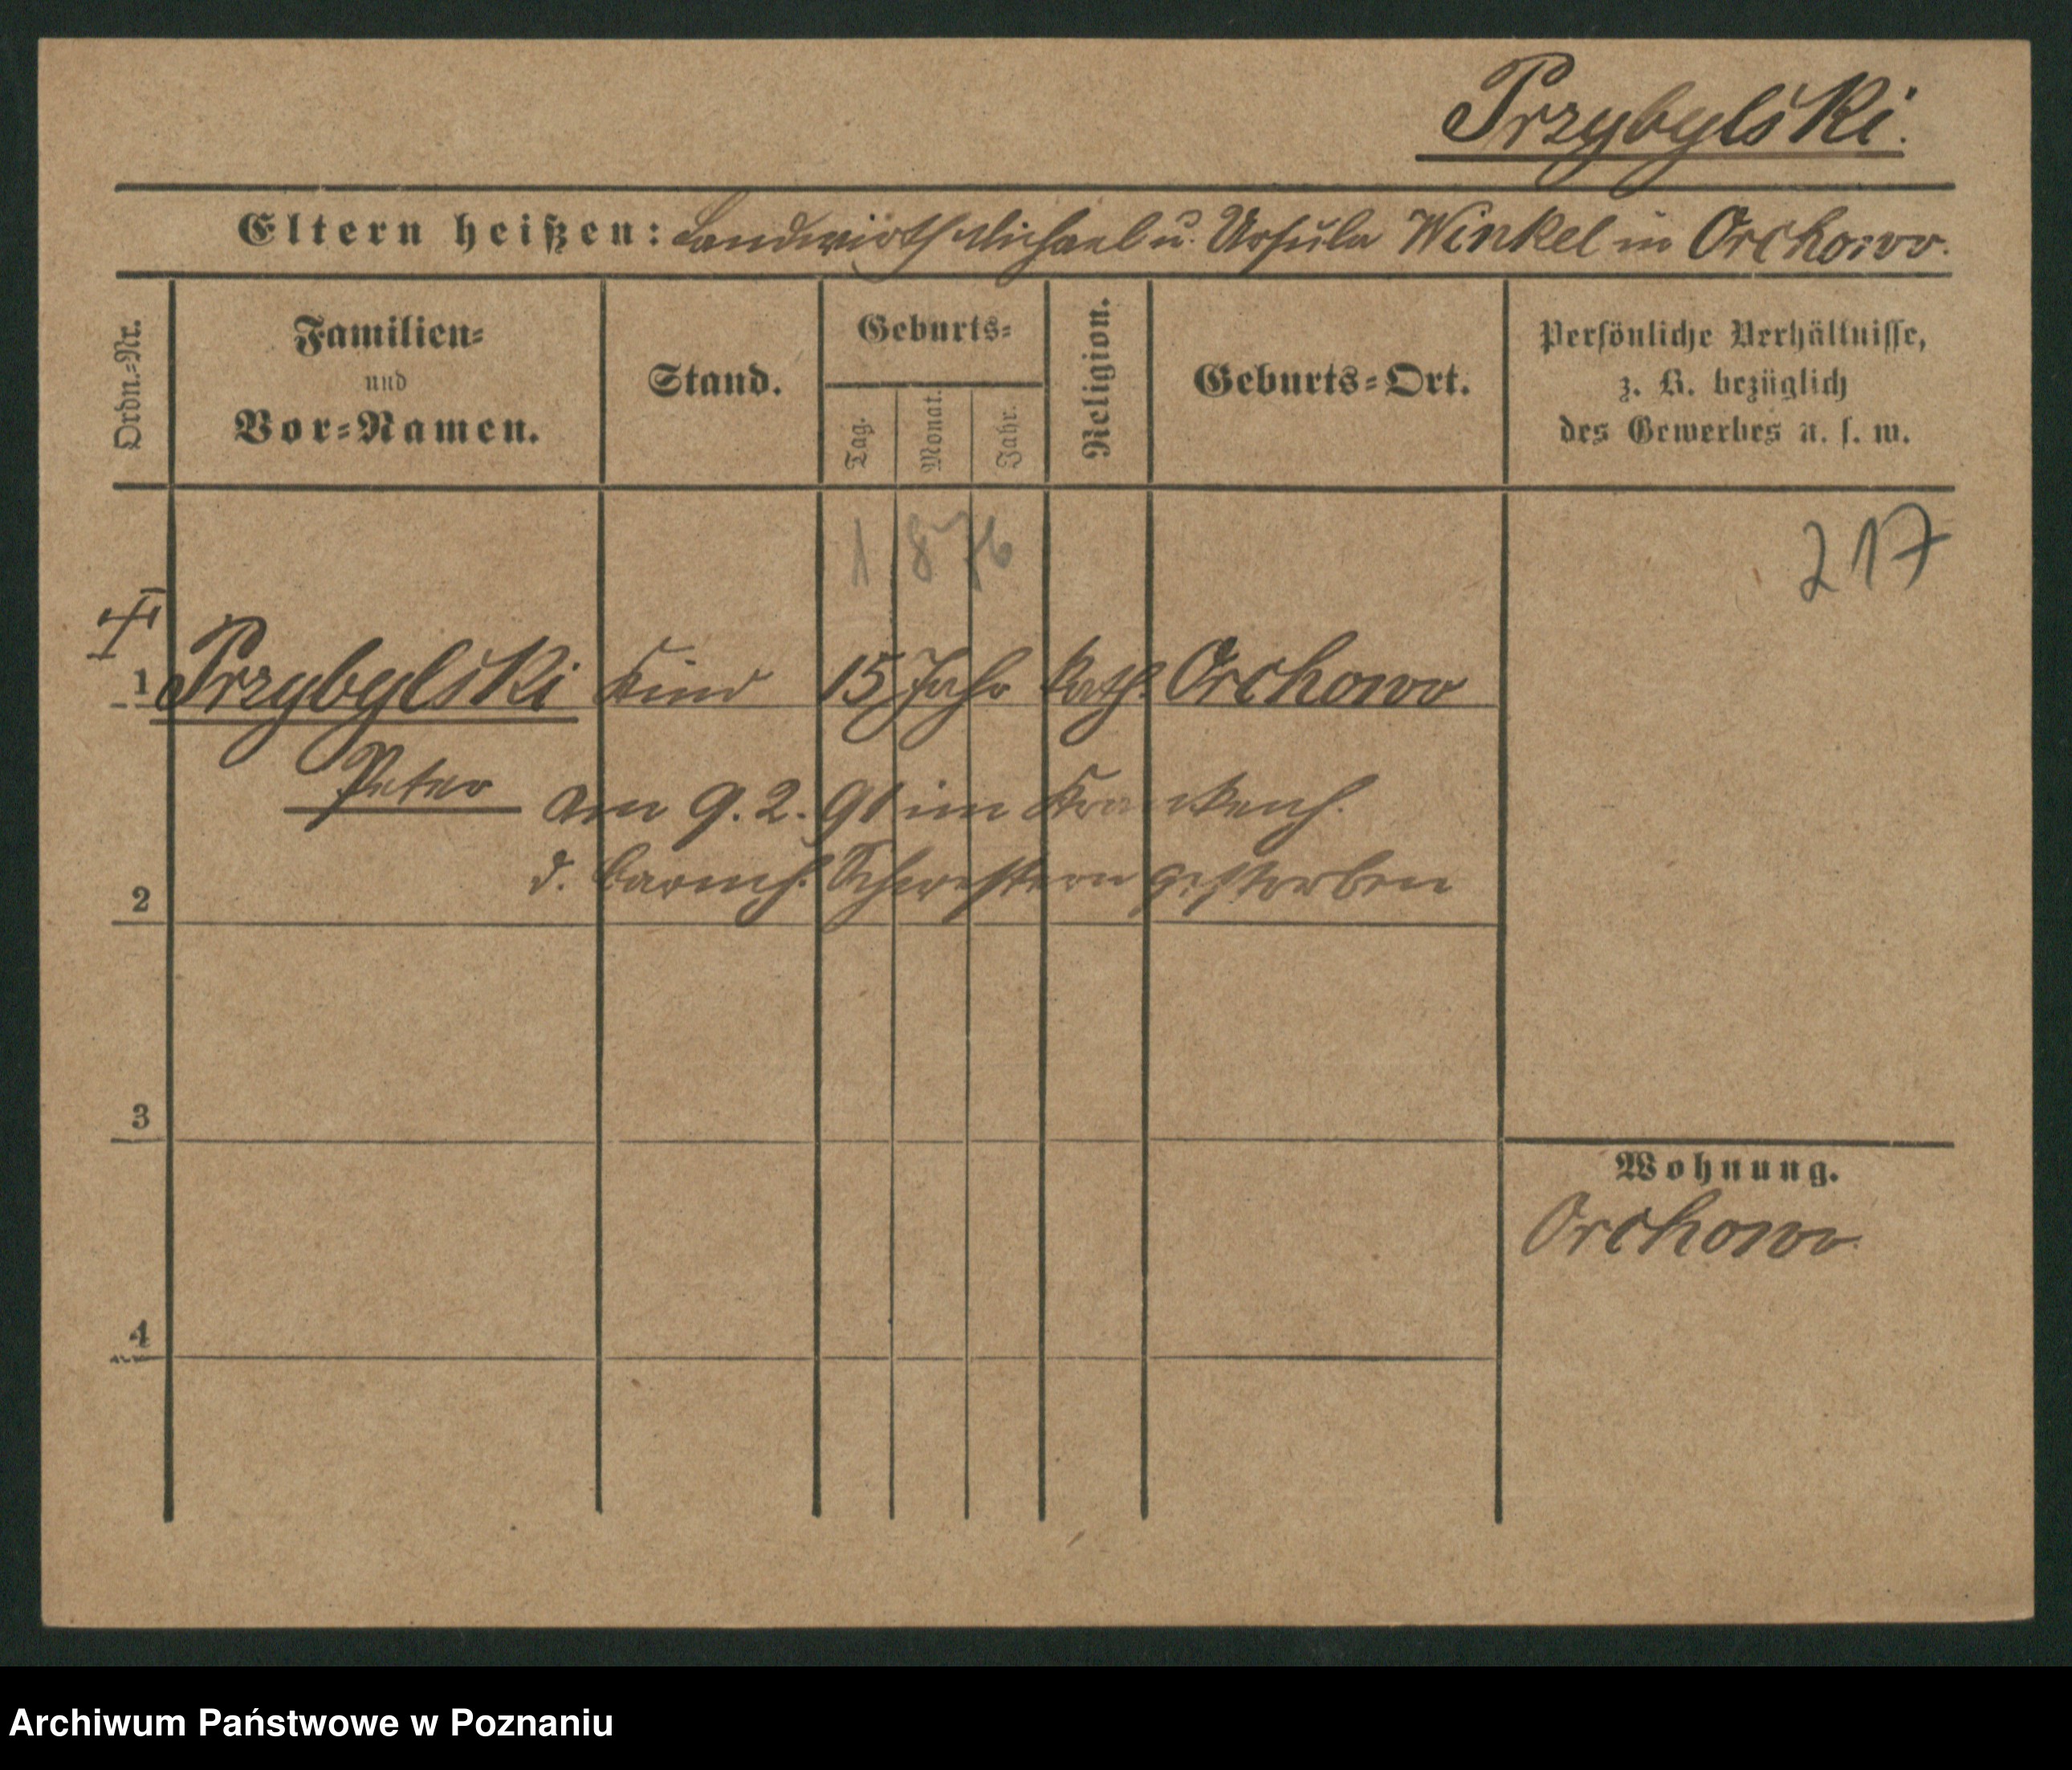 Przybylski.
Eltern heißen: Landwirth Michael u. Ursula Winkel in Orchowo.
Ordn.-Nr.
Familien-
und
Vor-Namen.
Stand.
Geburts-
Tag.
Monat.
Jahr.
Religion.
Geburts-Ort.
Persönliche Verhältnisse,
z. B. bezüglich
des Gewerbes u. s. w.
1876
217
1 Przybylski Kind 15 Jahr kath. Orchowo
Peter am 9.2.91 im Krankenh.
d. barmh. Schwestern gestorben
2
3
Wohnung.
Orchowo.
4
Archiwum Państwowe w Poznaniu